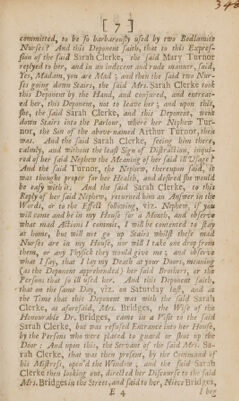 [ 7 ]
committed, to be so barbarously used by two Bedlamite
Nurses? And this Deponent saith, that to this Expres-
sion of the said Sarah Clerke, the said Mary Turnor
replyed to her, and in an indecent and rude manner, said,
Yes, Madam, you are Mad; and then the said two Nur-
ses going down Stairs, the said Mrs. Sarah Clerke took
this Deponent by the Hand, and conjured, and entrea-
ed her, this Deponent, not to leave her; and upon this,
she, the said Sarah Clerke, and this Deponent, went
down Stairs into the Parlour, where her Nephew Tur-
nor, the Son of the above-named Arthur Turnor, then
was. And the said Sarah Clerke, seeing him there,
calmly, and without the least Sign of Distraction, inqui-
red of her said Nephew the Meaning of her said ill Usage?
And the said Turnor, the Nephew, thereupon said, it
was thought proper for her Health, and desired she would
be easy with it: And the said Sarah Clerke, to this
Reply of her said Nephew, returned him an Answer in the
Words, or to the Effect following, viz. Nephew, if you
will come and be in my House for a Month, and observe
what mad Actions I commit, I will be contented to stay
at home, but will not go up Stairs whilst their mad
Nurses are in my House, nor will I take one drop from
them, or any Physick they would give me; and observe
what I say, that I lay my Death at your Doors, meaning
(as the Deponent apprehended) her said Brothers, or the
Persons that so ill used her. And this Deponent saith,
that on the same Day, viz. on Saturday last, and at
the Time that this Deponent was with the said Sarah
Clerke, as aforesaid, Mrs. Bridges, the Wife of the
Honourable Dr. Bridges, came in a Visit to the said
Sarah Clerke, but was refused Entrance into her House,
by the Persons who were placed to guard or shut up the
Door: And upon this, the Servant of the said Mrs. Sa-
rah Clerke, that was then present, by the Command of
his Mistress, open'd the Window; and the said Sarah
Clerke then looking out, directed her Discourse to the said
Mrs. Bridges in the Street, and said to her, Niece Bridges,
E 4 I beg